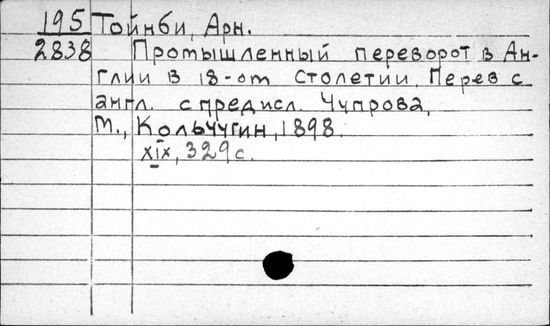 195 Тойнби, Арн.
2838 Промышленный переворот в Ан-
глии в 18-от столетии. Перев с
англ. с предисл. Чупрова,
М., Кольчугин, 1898.
XIX, 329 с.